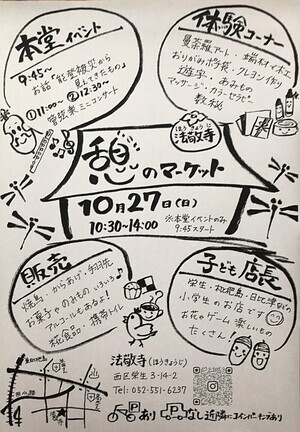 本堂イベント
9:45〜
お話「能登被災から
見えてきたもの」
①11:00〜 ②12:30〜
管弦楽ミニコンサート
体験コーナー
曼荼羅アート・端材で木工
おりがみ教室・クレヨン作り
遊字・あみもの
マッサージ・カラーセラピー
数秘
ほうきょうじ
法敬寺
憩のマーケット
10月27日(日)
10:30〜14:00
※本堂イベントのみ
9:45スタート
販売
焼鳥・からあげ・手羽先
お菓子・のみもの いろいろ♪
アルコールもあるよ!
乾食品・携帯トイレ
子ども店長
栄生・枇杷島・日比津などの
小学生のお店です
お花やゲーム楽しいもの
たくさん
法敬寺(ほうきょうじ)
西区栄生3-14-2
Tel:052-551-6237
あり なし 近隣にコインパーキングあり